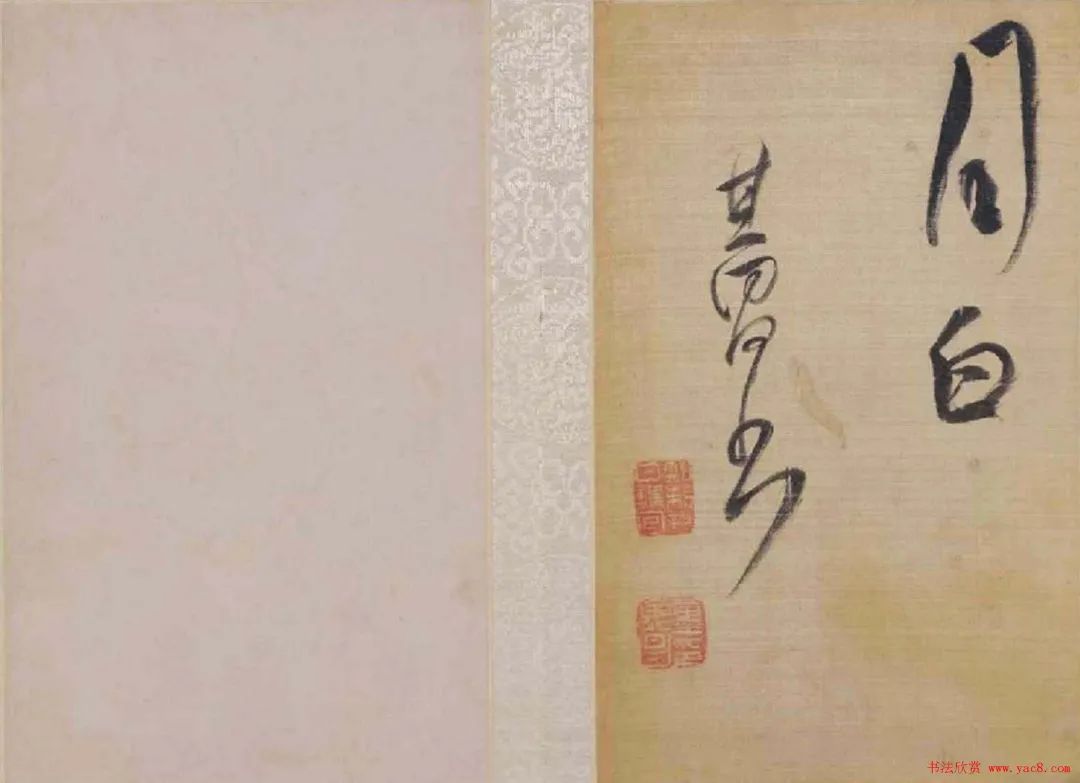 間白
其昌書
书法欣赏 www.yac8.com